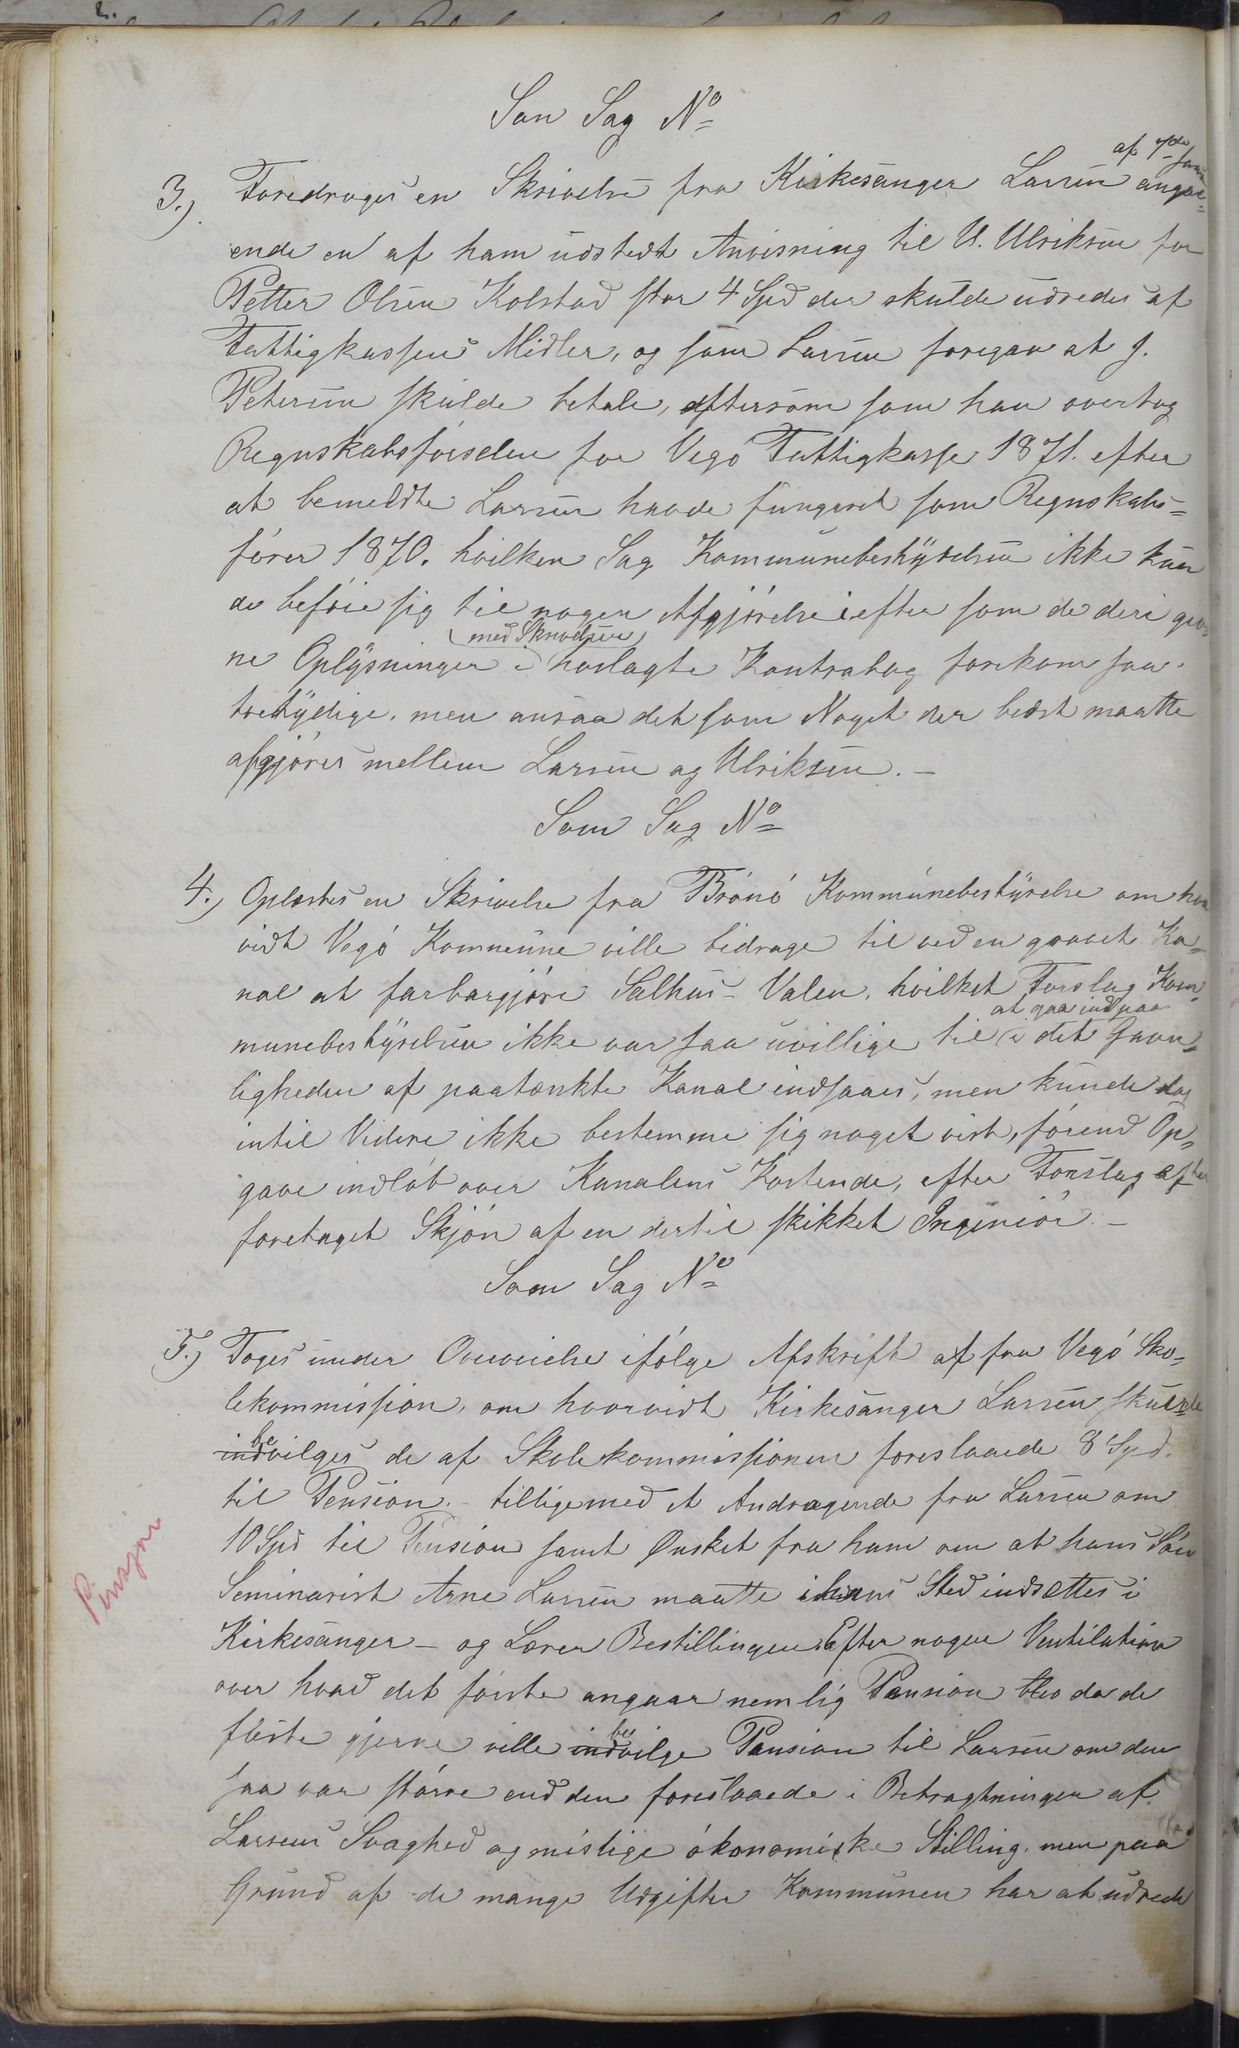 Som Sag No
3.) Foredroges en Skrivelse fra Kirkesanger Larsen af angaa=
ende en af ham udstedt Anvisning til U. Ulriksen for
Petter Olsen Kolstad stor 4 Spd der skulde udredes af
Fattigkassens Midler, og som Larsen foregav at J.
Petersen skulde betale, eftersom som han overtog
Regnskabsførselen for Vegø Fattigkasse 1871. efter
at bemeldte Larsen havde fungeret som Regnskabs=
fører 1870. hvilken Sag Kommunebestyrelsen ikke kun
de beføie sig til nogen Afgjørelse i efter som de deri giv=
ne Oplysninger i (med Skrivelsen) hoslagte Kontrabog forekom saa
tvetydige. men ansaa det som Noget der bedst maatte
afgjøres mellem Larsen og Ulriksen. —
Som Sag No
4.) Oplæstes en Skrivelse fra Brønø Kommunebestyrelse om hvor
vidt Vegø Kommune ville bidrage til ved en gravet Ka=
nal at farbargjøre Salhus-Valen, hvilket Forslag Kom=
munebestyrelsen ikke var saa uvillige til at gaa ind paa i det Gavn=
ligheden af paatænkte Kanal indsaaes, men kunde dog
intil Videre ikke bestemme sig noget vist, førend Op=
gave indløb over Kanalens Kostende, efter Forslag efter
foretaget Skjøn af en dertil skikket Ingeniør. —
Som Sag No
5.) Toges under Overveielse ifølge Afskrift af fra Vegø Sko=
lekommission, om hvorvidt Kirkesanger Larsen skulde
indbevilges de af Skolekommissionen foreslaaede 8 Spd.
til Pension. — tilligemed et Andragende fra Larsen om
10 Spd til Pension samt Ønsket fra ham om at hans Søn
Seminarist Arne Larsen maatte i hans Sted indsættes i
Pensjon
Kirkesanger — og Lærer Bestillingen. Efter nogen Ventilation
over hvad det første angaar nemlig Pension da de
fleste gjerne ville indbevilge Pension til Larsen om den
saa var større end den foreslaaede i Betragtningen af
Larsens Svaghed og mislige økonomiske Stilling. men paa
Grund af de mange Udgifter Kommunen har at udrede